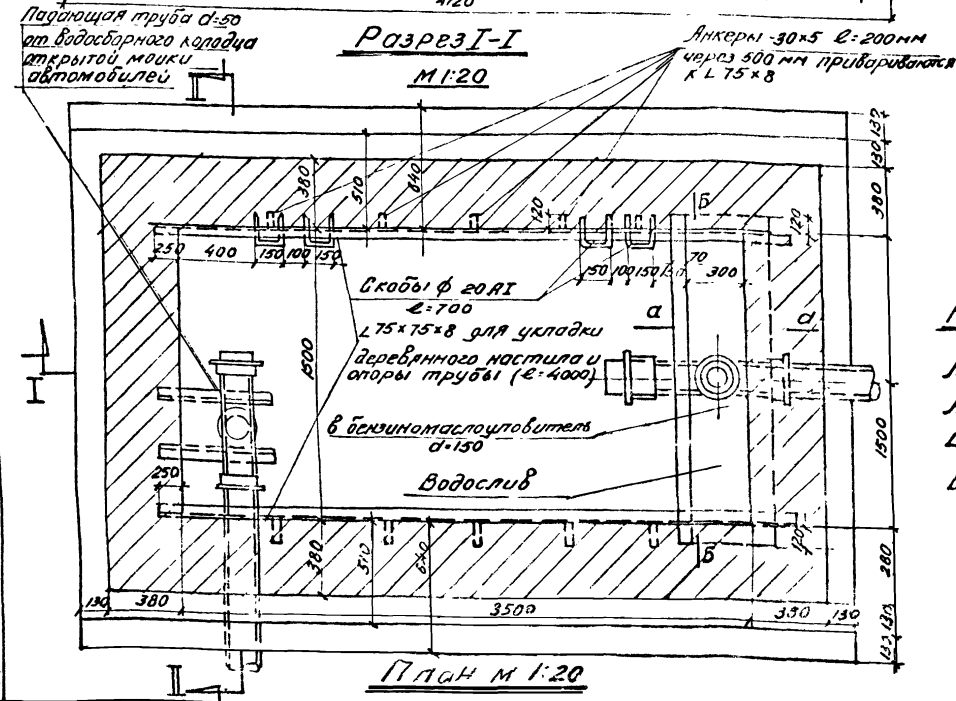 4120
Падающая труба d=50
от водосборного колодца
открытой мойки
автомобилей
Разрез I-I
М 1:20
Анкеры -30×5 ℓ=200мм
через 500 мм привариваются
к L 75×8
II
130
130
380
380
510
640
120
Б
120
250
400
150
100
150
150
100
150
70
300
Скобы ϕ 20АI
ℓ=700
а
а
L 75×75×8 для укладки
деревянного настила и
опоры трубы (ℓ=4000)
I
1500
1500
в бензиномаслоуловитель
d=150
Водослив
250
380
510
640
Б
120
280
130
380
3500
390
130
130
130
II
План м 1:20